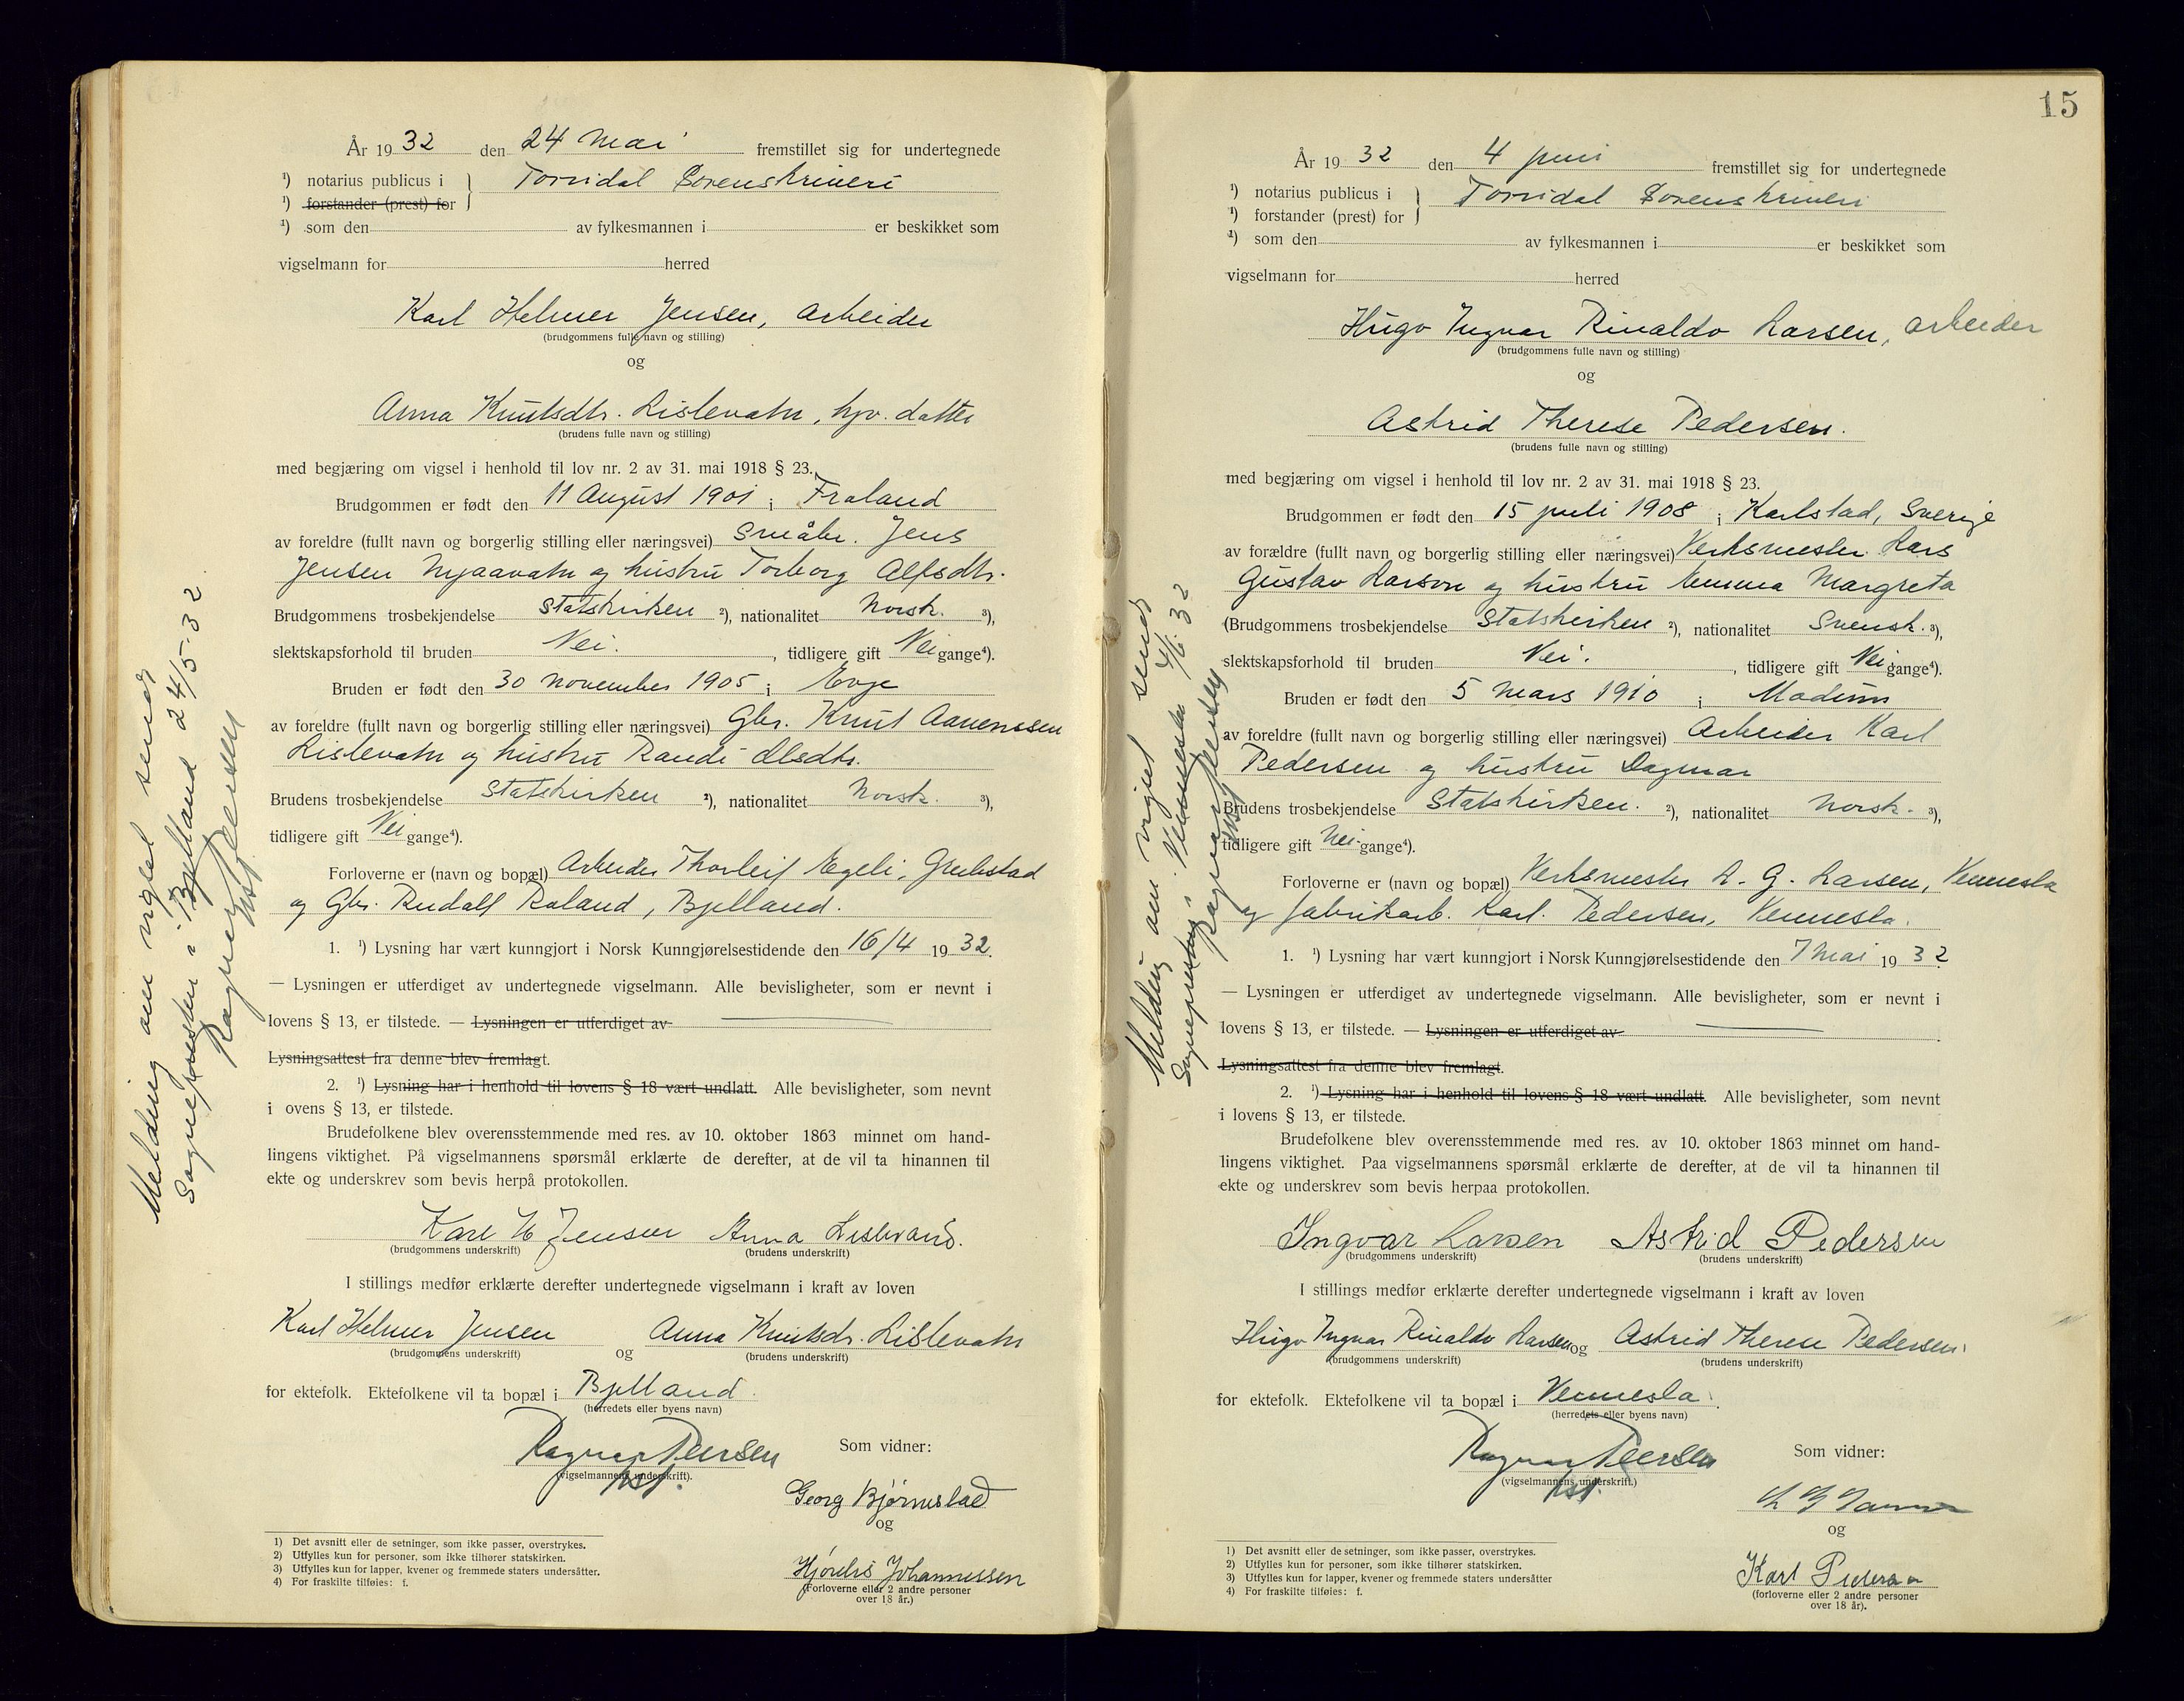 År 1932 den 24 Mai fremstillet sig for undertegnede
¹) notarius publicus i } Torridal Sorenskriveri
¹) forstander (prest) for
¹) som den av fylkesmannen i er beskikket som
vigselmann for herred
Karl Helmer Jensen, arbeider
(brudgommens fulle navn og stilling)
og
Anna Knutsdtr. Lislevatn, hjv. datter
(brudens fulle navn og stilling)
med begjæring om vigsel i henhold til lov nr. 2 av 31. mai 1918 § 23.
Brudgommen er født den 11 August 1901 i Froland
av foreldre (fullt navn og borgerlig stilling eller næringsvei) Småbr. Jens
Jensen Myaavatn og hustru Torborg Alfsdtr.
Brudgommens trosbekjendelse Statskirken ²), nationalitet Norsk. ³),
slektskapsforhold til bruden Nei. , tidligere gift Nei gange⁴).
Bruden er født den 30 November 1905 i Evje
av foreldre (fullt navn og borgerlig stilling eller næringsvei) Gbr. Knut Aanenssen
Lislevatn og hustru Randi Olsdtr.
Brudens trosbekjendelse Statskirken ²), nationalitet Norsk. ³),
tidligere gift Nei gange⁴).
Forloverne er (navn og bopæl) Arbeider Thorleif Egeli, Greibstad
og Gbr. Rudolf Roland, Bjelland.
1. ¹) Lysning har vært kunngjort i Norsk Kunngjørelsestidende den 16/4 1932.
— Lysningen er utferdiget av undertegnede vigselmann. Alle bevisligheter, som er nevnt i
lovens § 13, er tilstede. — Lysningen er utferdiget av
Lysningsattest fra denne blev fremlagt.
2. ¹) Lysning har i henhold til lovens § 18 vært undlatt. Alle bevisligheter, som nevnt
i ovens § 13, er tilstede.
Brudefolkene blev overensstemmende med res. av 10. oktober 1863 minnet om hand-
lingens viktighet. På vigselmannens spørsmål erklærte de derefter, at de vil ta hinannen til
ekte og underskrev som bevis herpå protokollen.
Karl H Jensen Anna Lislevand.
(brudgommens underskrift) (brudens underskrift)
I stillings medfør erklærte derefter undertegnede vigselmann i kraft av loven
Karl Helmer Jensen og Anna Knutsdr. Lislevatn
(brudgommens underskrift) (brudens underskrift)
for ektefolk. Ektefolkene vil ta bopæl i Bjelland.
(herredets eller byens navn)
Ragnar Peersen Som vidner:
(vigselmannens underskrift).
kst.
Georg Bjørnestad
og
Hjørdis Johannessen
(forloverne eller 2 andre personer
over 18 år.)
1) Det avsnitt eller de setninger, som ikke passer, overstrykes.
2) Utfylles kun for personer, som ikke tilhører statskirken.
3) Utfylles kun for lapper, kvener og fremmede staters undersåtter.
4) For fraskilte tilføies: f.
Melding om vigsel sendt
Sognepresten i Bjelland 24/5-32
Ragnar Peersen
kst.
15
År 1932 den 4 juni fremstillet sig for undertegnede
¹) notarius publicus i } Torridal Sorenskriveri
¹) forstander (prest) for
¹) som den av fylkesmannen i er beskikket som
vigselmann for herred
Hugo Ingvar Rinaldo Larsen, arbeider
(brudgommens fulle navn og stilling)
og
Astrid Therese Pedersen.
(brudens fulle navn og stilling)
med begjæring om vigsel i henhold til lov nr. 2 av 31. mai 1918 § 23.
Brudgommen er født den 15 juli 1908 i Karlstad, Sverige
av forældre (fullt navn og borgerlig stilling eller næringsvei) Verksmester Lars
Gustav Larson og hustru Emma Margreta
(Brudgommens trosbekjendelse Statskirken ²), nationalitet Svensk. ³),
slektskapsforhold til bruden Nei. , tidligere gift Nei gange⁴).
Bruden er født den 5 Mars 1910 i Modum
av foreldre (fullt navn og borgerlig stilling eller næringsvei) Arbeider Karl
Pedersen og hustru Dagmar
Brudens trosbekjendelse Statskirken. ²), nationalitet Norsk. ³),
tidligere gift Nei. gange⁴).
Forloverne er (navn og bopæl) Verksmester L. G. Larsen, Vennesla
og fabrikarb. Karl. Pedersen, Vennesla.
1. ¹) Lysning har vært kunngjort i Norsk Kunngjørelsestidende den 7 Mai 1932.
— Lysningen er utferdiget av undertegnede vigselmann. Alle bevisligheter, som er nevnt i
lovens § 13, er tilstede. — Lysningen er utferdiget av
Lysningsattest fra denne blev fremlagt.
2. ¹) Lysning har i henhold til lovens § 18 vært undlatt. Alle bevisligheter, som nevnt
i lovens § 13, er tilstede.
Brudefolkene blev overensstemmende med res. av 10. oktober 1863 minnet om hand-
lingens viktighet. Paa vigselmannens spørsmål erklærte de derefter, at de vil ta hinannen til
ekte og underskrev som bevis herpaa protokollen.
Ingvar Larsen Astrid Pedersen
(brudgommens underskrift) (brudens underskrift)
I stillings medfør erklærte derefter undertegnede vigselmann i kraft av loven
Hugo Ingvar Rinaldo Larsen og Astrid Therese Pedersen.
(brudgommens underskrift) (brudens underskrift)
for ektefolk. Ektefolkene vil ta bopæl i Vennesla.
(herredets eller byens navn)
Ragnar Peersen Som vidner:
(vigselmannens underskrift.)
kst.
og
Karl Pedersen
(forloverne eller 2 andre personer
over 18 år).
1) Det avsnitt eller de setninger, som ikke passer, overstrykes.
2) Utfylles kun for personer, som ikke tilhører statskirken.
3) Utfylles kun for lapper, kvener og fremmede staters undersåtter
4) For fraskilte tilføies: f.
Melding om vigsel sendt
Sognepresten i Vennesla 4/6 32
Ragnar Peersen
kst